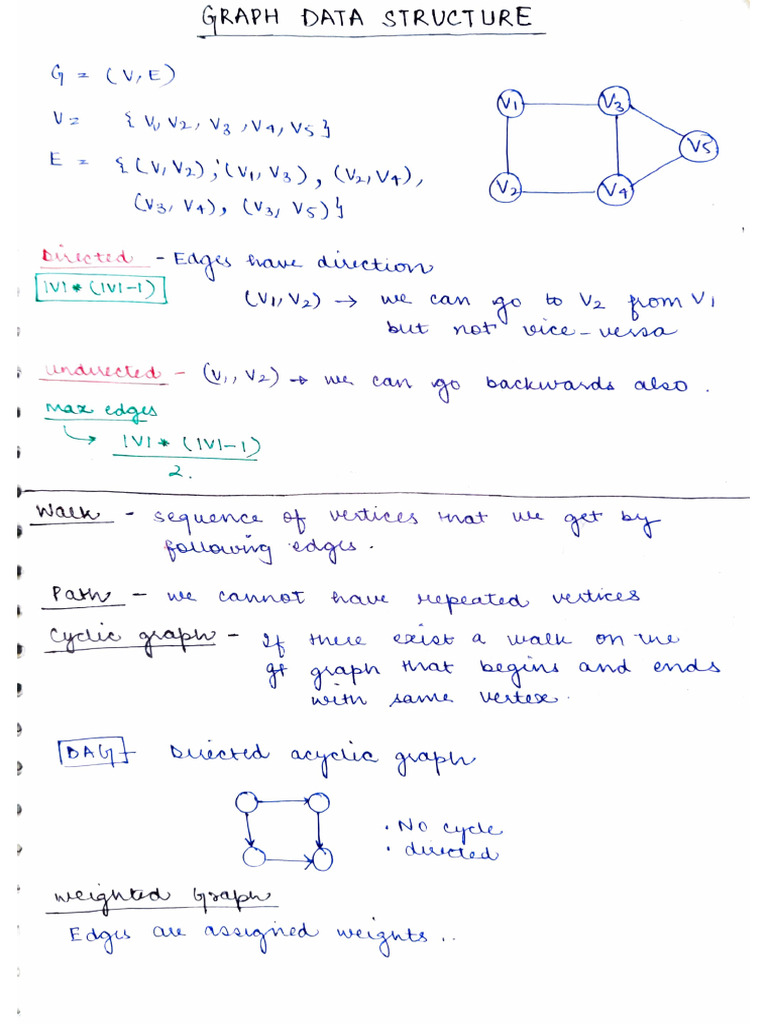 GRAPH DATA STRUCTURE
G = (V, E)
V = {V1, V2, V3, V4, V5}
E = {(V1, V2), (V1, V3), (V2, V4),
(V3, V4), (V3, V5)}
V1 V3
V5
V2 V4
Directed - Edges have direction
|V| * (|V|-1)
(V1, V2) → we can go to V2 from V1
but not vice-versa
undirected - (V1, V2) → we can go backwards also.
Max edges
→ |V| * (|V|-1)
2.
Walk - sequence of vertices that we get by
following edges.
Path - we cannot have repeated vertices
Cyclic graph - If there exist a walk on the
graph that begins and ends
with same vertex.
DAG - Directed acyclic graph
• No cycle
• directed
Weighted Graph
Edges are assigned weights..